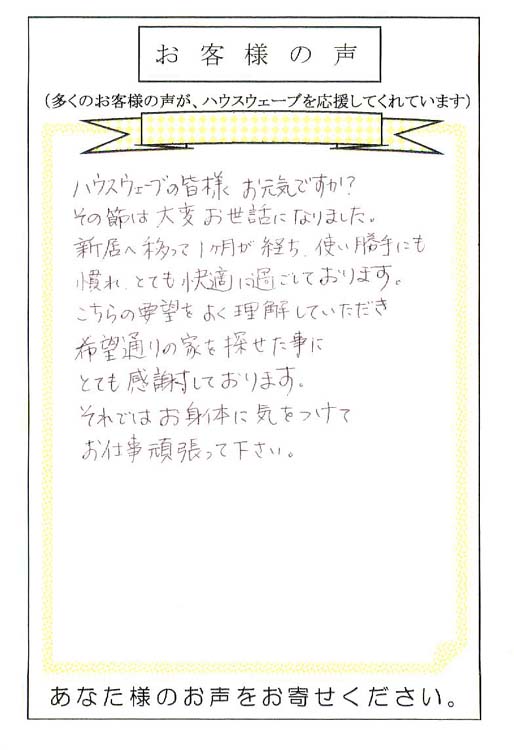 お客様の声
（多くのお客様の声が、ハウスウェーブを応援してくれています）
ハウスウェーブの皆様、お元気ですか？
その節は大変お世話になりました。
新居へ移って1ヶ月が経ち、使い勝手にも
慣れ、とても快適に過ごしております。
こちらの要望をよく理解していただき
希望通りの家を探せた事に
とても感謝しております。
それではお身体に気をつけて
お仕事頑張って下さい。
あなた様のお声をお寄せください。